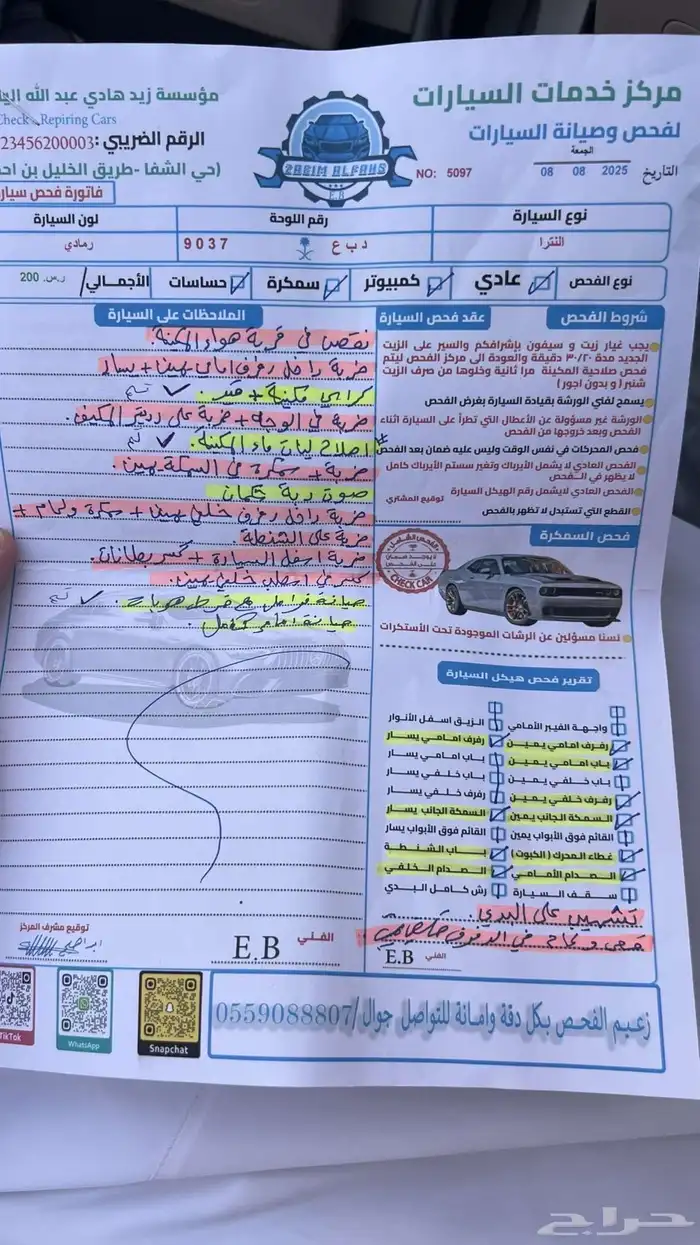 مركز خدمات السيارات
لفحص وصيانة السيارات
مؤسسة زيد هادي عبد الله
Check - Repiring Cars
الرقم الضريبي: 23456200003
(حي الشفا -طريق الخليل بن احمد
فاتورة فحص سيارة
ZAEIM ALFAHS
E.B
NO: 5097
الجمعة
التاريخ 2025 08 08
نوع السيارة
رقم اللوحة
لون السيارة
النترا
د ب ع 9037
رمادي
نوع الفحص
عادي
كمبيوتر
سمكرة
حساسات
الأجمالي/ 200 ر.س.
شروط الفحص
عقد فحص السيارة
يجب غيار زيت و سيفون بإشرافكم والسير على الزيت
الجديد مدة ٣٠/٢٠ دقيقة والعودة الى مركز الفحص ليتم
فحص صلاحية المكينة مرا ثانية وخلوها من صرف الزيت
شنبر ( و بدون اجور )
يسمح لفني الورشة بقيادة السيارة بغرض الفحص
الورشة غير مسؤولة عن الأعطال التي تطرأ على السيارة اثناء
الفحص وبعد خروجها من الفحص
فحص المحركات في نفس الوقت وليس عليه ضمان بعد الفحص
الفحص العادي لا يشمل الأيرباك وتغير سستم الأيرباك كامل
لا يظهر في الفحص
الفحص العادي لايشمل رقم الهيكل السيارة
توقيع المشتري
القطع التي تستبدل لا تظهر بالفحص
فحص السمكرة
CHECK CAR
لسنا مسؤلين عن الرشات الموجودة تحت الأستكرات
تقرير فحص هيكل السيارة
واجهة الفيبر الأمامي
الزيق اسفل الأنوار
رفرف امامي يمين
رفرف امامي يسار
باب امامي يمين
باب امامي يسار
باب خلفي يمين
باب خلفي يسار
رفرف خلفي يمين
رفرف خلفي يسار
السمكة الجانب يمين
السمكة الجانب يسار
القائم فوق الأبواب يمين
القائم فوق الأبواب يسار
غطاء المحرك (الكبوت)
باب الشنطة
الصدام الأمامي
الصدام الخلفي
سقف السيارة
رش كامل البدي
تشهيب على البدي.
الفني
E.B
الملاحظات على السيارة
نقص في قربة هواء المكينة.
ضربة داخل رفرف امامي يمين + يسار
كراسي مكينة + قير. تم
ضربة في الوجه + ضربة على رديتر المكينة.
اصلاح ليات ماء المكينة. تم
ضربة + سمكرة في السمكة يمين.
صوت ربة شكمان
ضربة داخل رفرف خلفي يمين + سمكرة ولحام +
ضربة على الشنطة.
ضربة اسفل السيارة + كسر بطانات.
كسر في اصطب خلفي يمين.
صيانة فرامل تم
الفني
E.B
توقيع مشرف المركز
ابراهيم
زعيم الفحص بكل دقة وامانة للتواصل جوال/0559088807
TikTok
WhatsApp
Snapchat
حراج